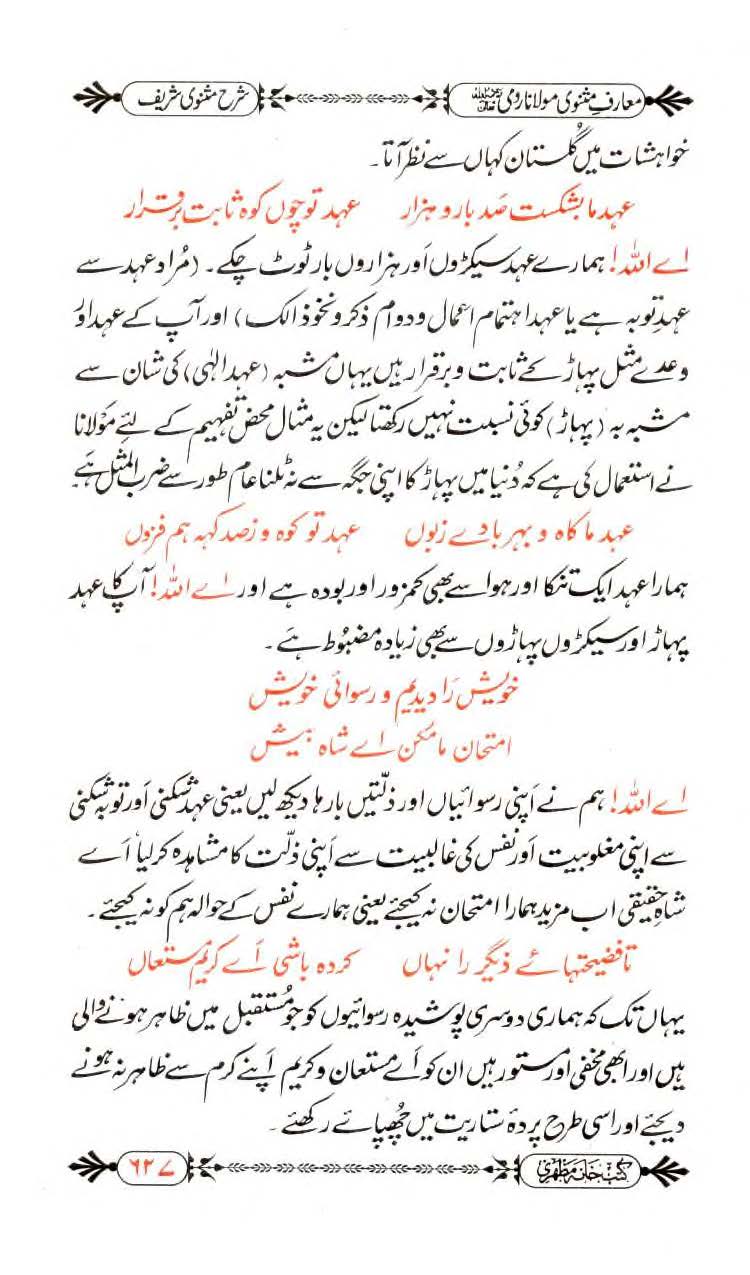 معارفِ مثنوی مولانا رومی رحمۃ اللہ علیہ
شرح مثنوی شریف
خواہشات میں گلستان کہاں سے نظر آتا۔
عہدِ ما بشکست صَد بار و ہزار عہدِ تو چوں کوہ ثابت برقرار
اے اللہ! ہمارے عہد سیکڑوں اَور ہزاروں بار ٹوٹ چکے۔ (مُراد عہد سے
عہدِ توبہ ہے یا عہد اہتمام اعمال و دوام ذکر و نخوذالک) اور آپ کے عہد اور
وعدے مثل پہاڑ کے ثابت و برقرار ہیں یہاں مشبہ (عہد الٰہی) کی شان سے
مشبہ بہ (پہاڑ) کوئی نسبت نہیں رکھتا لیکن یہ مثال محض تفہیم کے لئے مَولانا
نے استعمال کی ہے کہ دُنیا میں پہاڑ کا اپنی جگہ سے نہ ٹلنا عام طور سے ضرب المثل ہَے۔
عہد ما کاہ و بہر بادے زبوں عہد تو کوہ و زصد کہہ ہم فزوں
ہمارا عہد ایک تنکا اور ہوا سے بھی کمزور اور بودہ ہے اور اے اللہ! آپ کا عہد
پہاڑ اور سیکڑوں پہاڑوں سے بھی زیادہ مضبُوط ہَے۔
خویش رَا دیدیم و رسوائی خویش
امتحان ما مکُن اے شاہ بیش
اے اللہ! ہم نے اَپنی رسوائیاں اور ذلّتیں بارہا دیکھ لیں یعنی عہد شکنی اَور توبہ شکنی
سے اپنی مغلوبیت اَور نفس کی غالبیت سے اَپنی ذلّت کا مشاہدہ کر لیا اَے
شاہِ حقیقی اب مزید ہمارا امتحان نہ کیجئے یعنی ہمارے نفس کے حوالہ ہم کو نہ کیجئے۔
تا فضیحتہائے دیگر را نہاں کردہ باشی اَے کریمِ مستعاں
یہاں تک کہ ہماری دوسری پوشیدہ رسوائیوں کو جو مُستقبل میں ظاہر ہونے والی
ہیں اور ابھی مخفی اَور مستور ہیں ان کو اَے مستعان و کریم اَپنے کرم سے ظاہر نہ ہونے
دیجئے اور اسی طرح پردۂ ستاریت میں چھُپائے رکھئے۔
کتب خانہ مظہری
۶۲۷